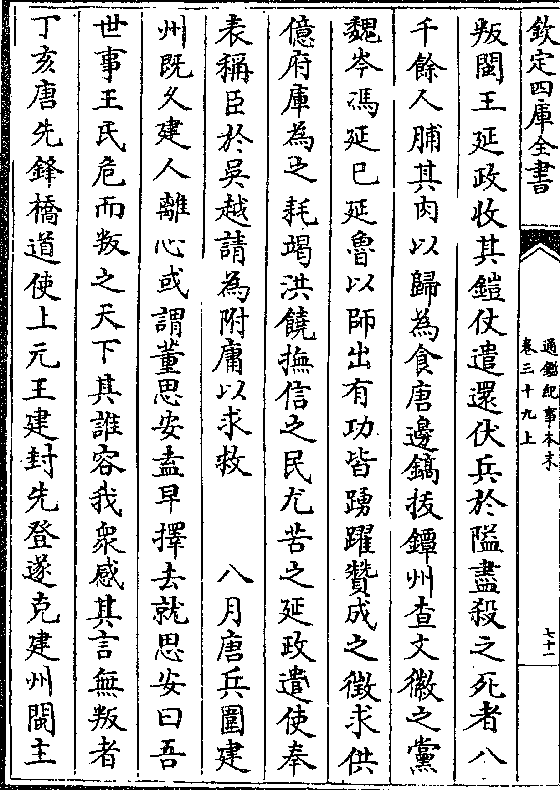 欽定四庫全書
通鑑紀事本末
卷三十九上
七十一
叛閩王延政收其鎧仗遣還伏兵於隘盡殺之死者八
千餘人脯其肉以歸為食唐邊鎬拔鐔州查文徽之黨
魏岑馮延巳延魯以師出有功皆踴躍贊成之徵求供
億府庫為之耗竭洪饒撫信之民尤苦之延政遣使奉
表稱臣於吳越請為附庸以求救　八月唐兵圍建
州既久建人離心或謂董思安盍早擇去就思安曰吾
世事王氏危而叛之天下其誰容我衆感其言無叛者
丁亥唐先鋒橋道使上元王建封先登遂克建州閩主